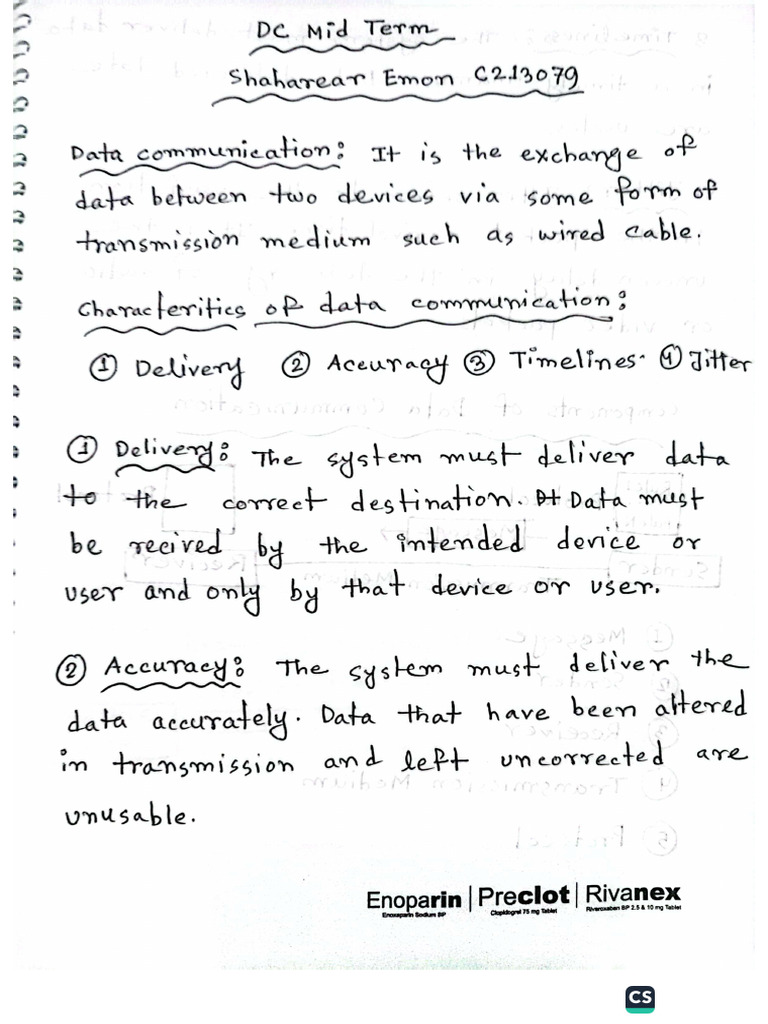 DC Mid Term
Shaharear Emon C213079
Data communication: It is the exchange of
data between two devices via some form of
transmission medium such as wired cable.
Characteritics of data communication:
① Delivery ② Accuracy ③ Timelines. ④ Jitter
① Delivery: The system must deliver data
to the correct destination. Data must
be recived by the intended device or
user and only by that device or user.
② Accuracy: The system must deliver the
data accurately. Data that have been altered
in transmission and left uncorrected are
unusable.
Enoparin | Preclot | Rivanex
Enoxaparin Sodium BP Clopidogrel 75 mg Tablet Rivaroxaban BP 2.5 & 10 mg Tablet
CS